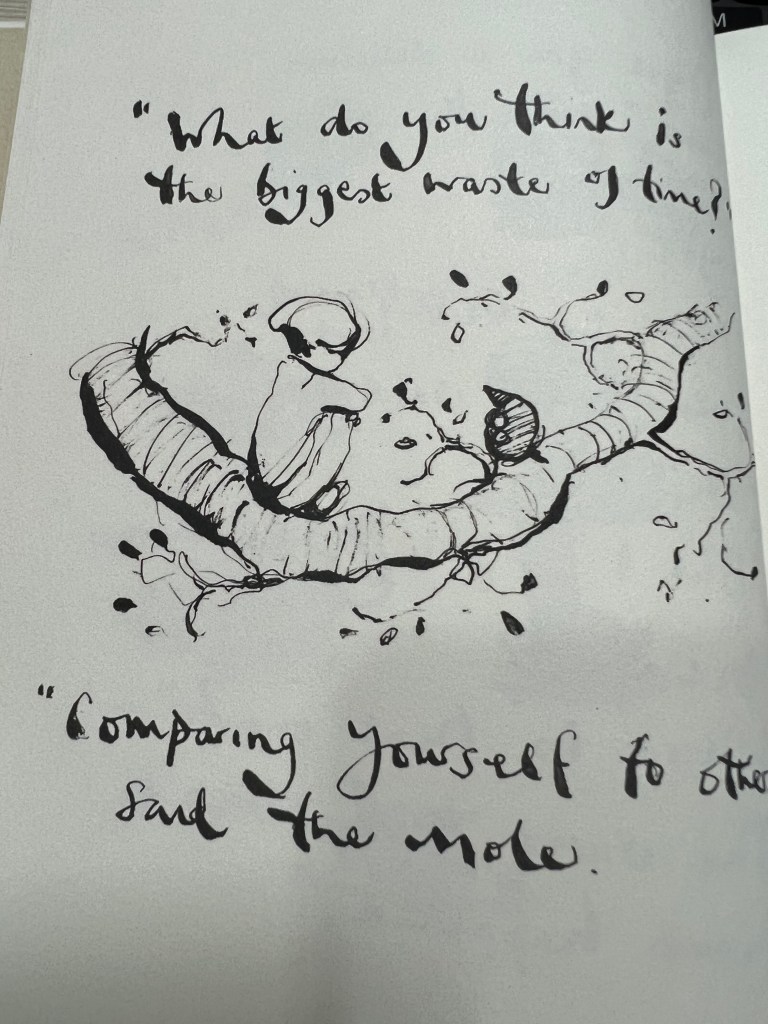 "What do you think is
the biggest waste of time?"
"Comparing yourself to other
said the mole.
M